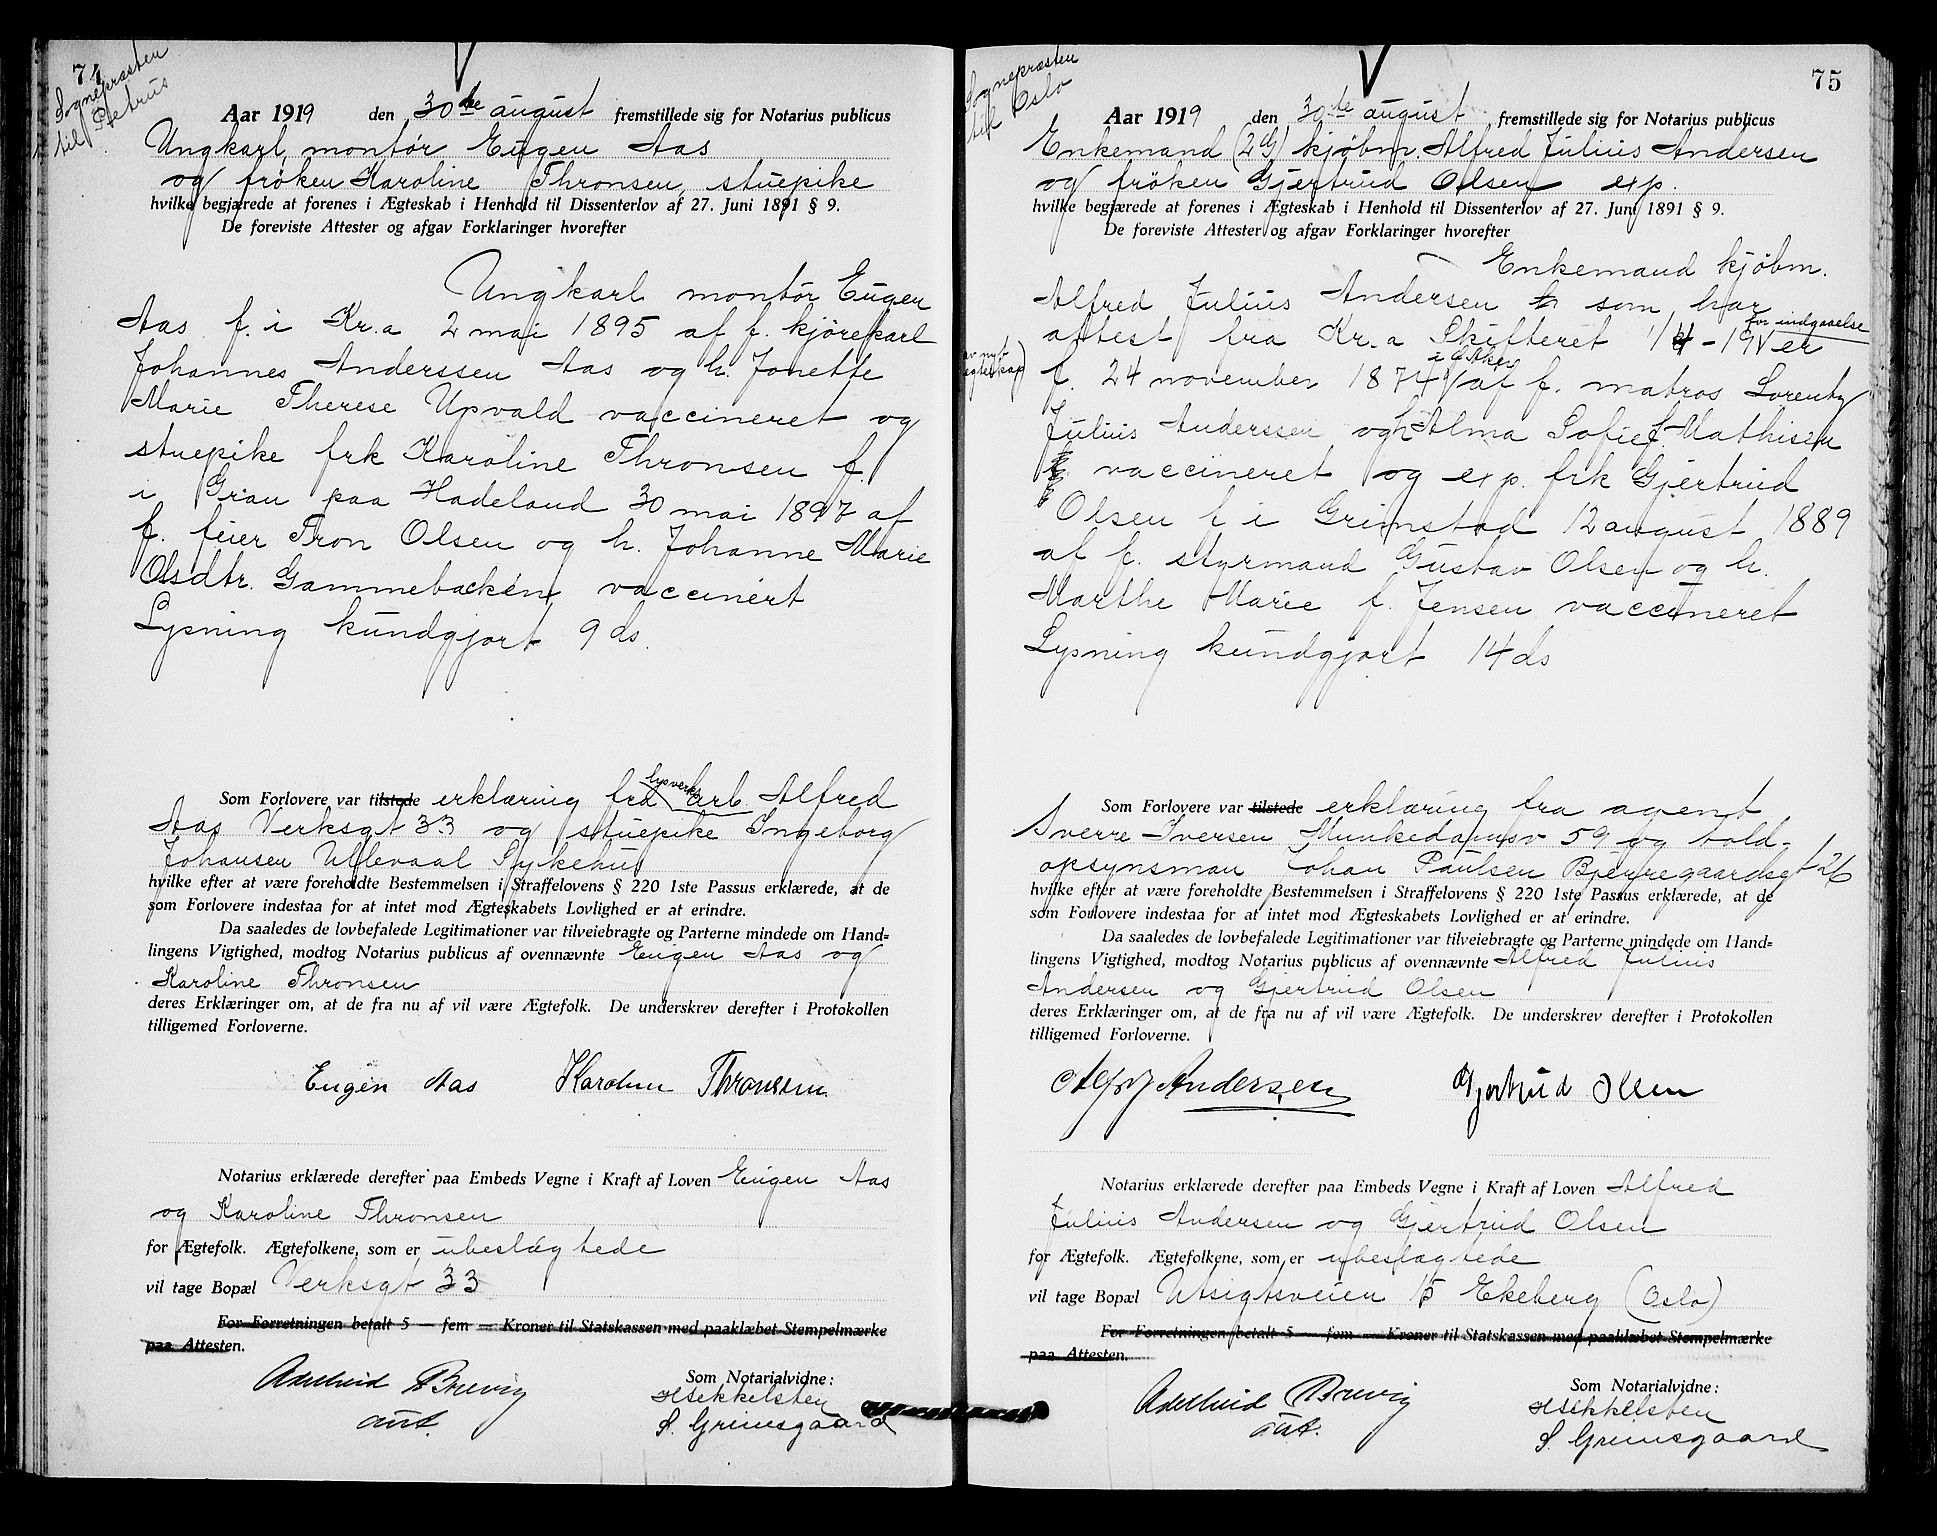 74
Sognepræsten
til Petrus
Aar 1919 den 30te august fremstillede sig for Notarius publicus
Ungkarl, montör Eugen Aas
og fröken Karoline Thronsen, stuepike
hvilke begjærede at forenes i Ægteskab i Henhold til Dissenterlov af 27. Juni 1891 § 9.
De foreviste Attester og afgav Forklaringer hvorefter
Ungkarl montör Eugen
Aas f. i Kr.a 2 mai 1895 af f. kjörekarl
Johannes Anderssen Aas og h. Jonette
Marie Therese Upvald vaccineret og
stuepike frk Karoline Thronsen f.
i Gran paa Hadeland 30 mai 1897 af
f. feier Tron Olsen og h. Johanne Marie
Olsdtr. Gammebakken vaccinert
Lysning kundgjort 9 ds.
Som Forlovere var tilstede erklæring fra lysverks arb. Alfred
Aas Verksgt 33 og stuepike Ingeborg
Johansen Ullevaal Sykehus
hvilke efter at være foreholdte Bestemmelsen i Straffelovens § 220 1ste Passus erklærede, at de
som Forlovere indestaa for at intet mod Ægteskabets Lovlighed er at erindre.
Da saaledes de lovbefalede Legitimationer var tilveiebragte og Parterne mindede om Hand=
lingens Vigtighed, modtog Notarius publicus af ovennævnte Eugen Aas og
Karoline Thronsen
deres Erklæringer om, at de fra nu af vil være Ægtefolk. De underskrev derefter i Protokollen
tilligemed Forloverne.
Eugen Aas Karoline Thronsen
Notarius erklærede derefter paa Embeds Vegne i Kraft af Loven Eugen Aas
og Karoline Thronsen
for Ægtefolk. Ægtefolkene, som er ubeslægtede
vil tage Bopæl Verksgt 33
For Forretningen betalt 5 — fem — Kroner til Statskassen med paaklæbet Stempelmærke
paa Attesten.
Adelheid Brevig
aut.
Som Notarialvidne:
HSekkelsten
S. Grimsgaard
75
Sognepræsten
til Oslo
Aar 1919 den 30te august fremstillede sig for Notarius publicus
Enkemand (2G) kjøbm. Alfred Julius Andersen
og fröken Gjertrud Olsen exp.
hvilke begjærede at forenes i Ægteskab i Henhold til Dissenterlov af 27. Juni 1891 § 9.
De foreviste Attester og afgav Forklaringer hvorefter
Enkemand kjøbm.
Alfred Julius Andersen som har
attest fra Kr.a Skifteret for indgaaelse
av nyt
egteskap) er
f. 24 november 1874 i Aker af f. matros Lorentz
Julius Anderssen og h. Alma Sofie f. Mathisen
vaccineret og exp. frk Gjertrud
Olsen f i Grimstad 12 august 1889
af f. styrmand Gustav Olsen og h.
Marthe Marie f. Jensen vaccineret
Lysning kundgjort 14 ds
Som Forlovere var tilstede erklæring fra agent
Sverre Iversen Munkedamsv 59 og told-
opsynsman Johan Paulsen Bjerregaardsgt 26
hvilke efter at være foreholdte Bestemmelsen i Straffelovens § 220 1ste Passus erklærede, at de
som Forlovere indestaa for at intet mod Ægteskabets Lovlighed er at erindre.
Da saaledes de lovbefalede Legitimationer var tilveiebragte og Parterne mindede om Hand=
lingens Vigtighed, modtog Notarius publicus af ovennævnte Alfred Julius
Andersen og Gjertrud Olsen
deres Erklæringer om, at de fra nu af vil være Ægtefolk. De underskrev derefter i Protokollen
tilligemed Forloverne.
Alfr J Andersen Gjertrud Olsen
Notarius erklærede derefter paa Embeds Vegne i Kraft af Loven Alfred
Julius Andersen og Gjertrud Olsen
for Ægtefolk. Ægtefolkene, som er ubeslægtede
vil tage Bopæl Utsigtsveien 15 Ekeberg (Oslo)
For Forretningen betalt 5 — fem — Kroner til Statskassen med paaklæbet Stempelmærke
paa Attesten.
Adelheid Brevig
aut.
Som Notarialvidne:
HSekkelsten
S. Grimsgaard